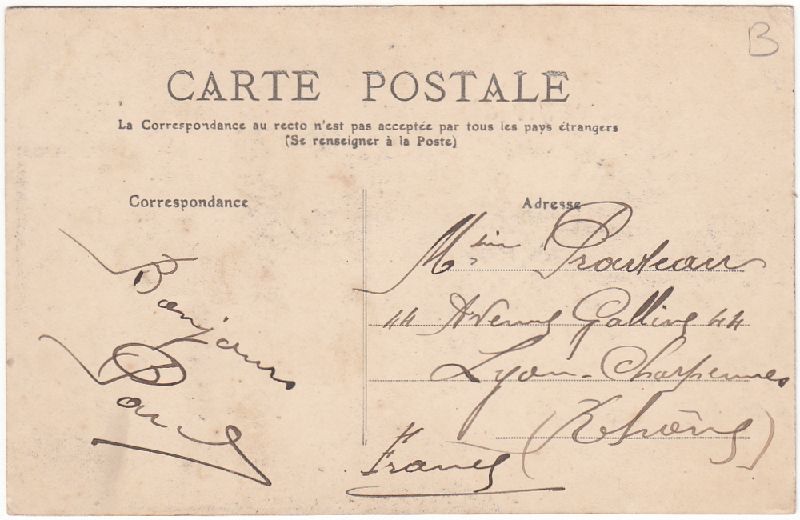 B
CARTE POSTALE
La Correspondance au recto n'est pas acceptée par tous les pays étrangers
(Se renseigner à la Poste)
Correspondance
Bonjours
Paul
Adresse
44 Avenue Galline 44
Lyon-Charpennes
(Rhône)
France